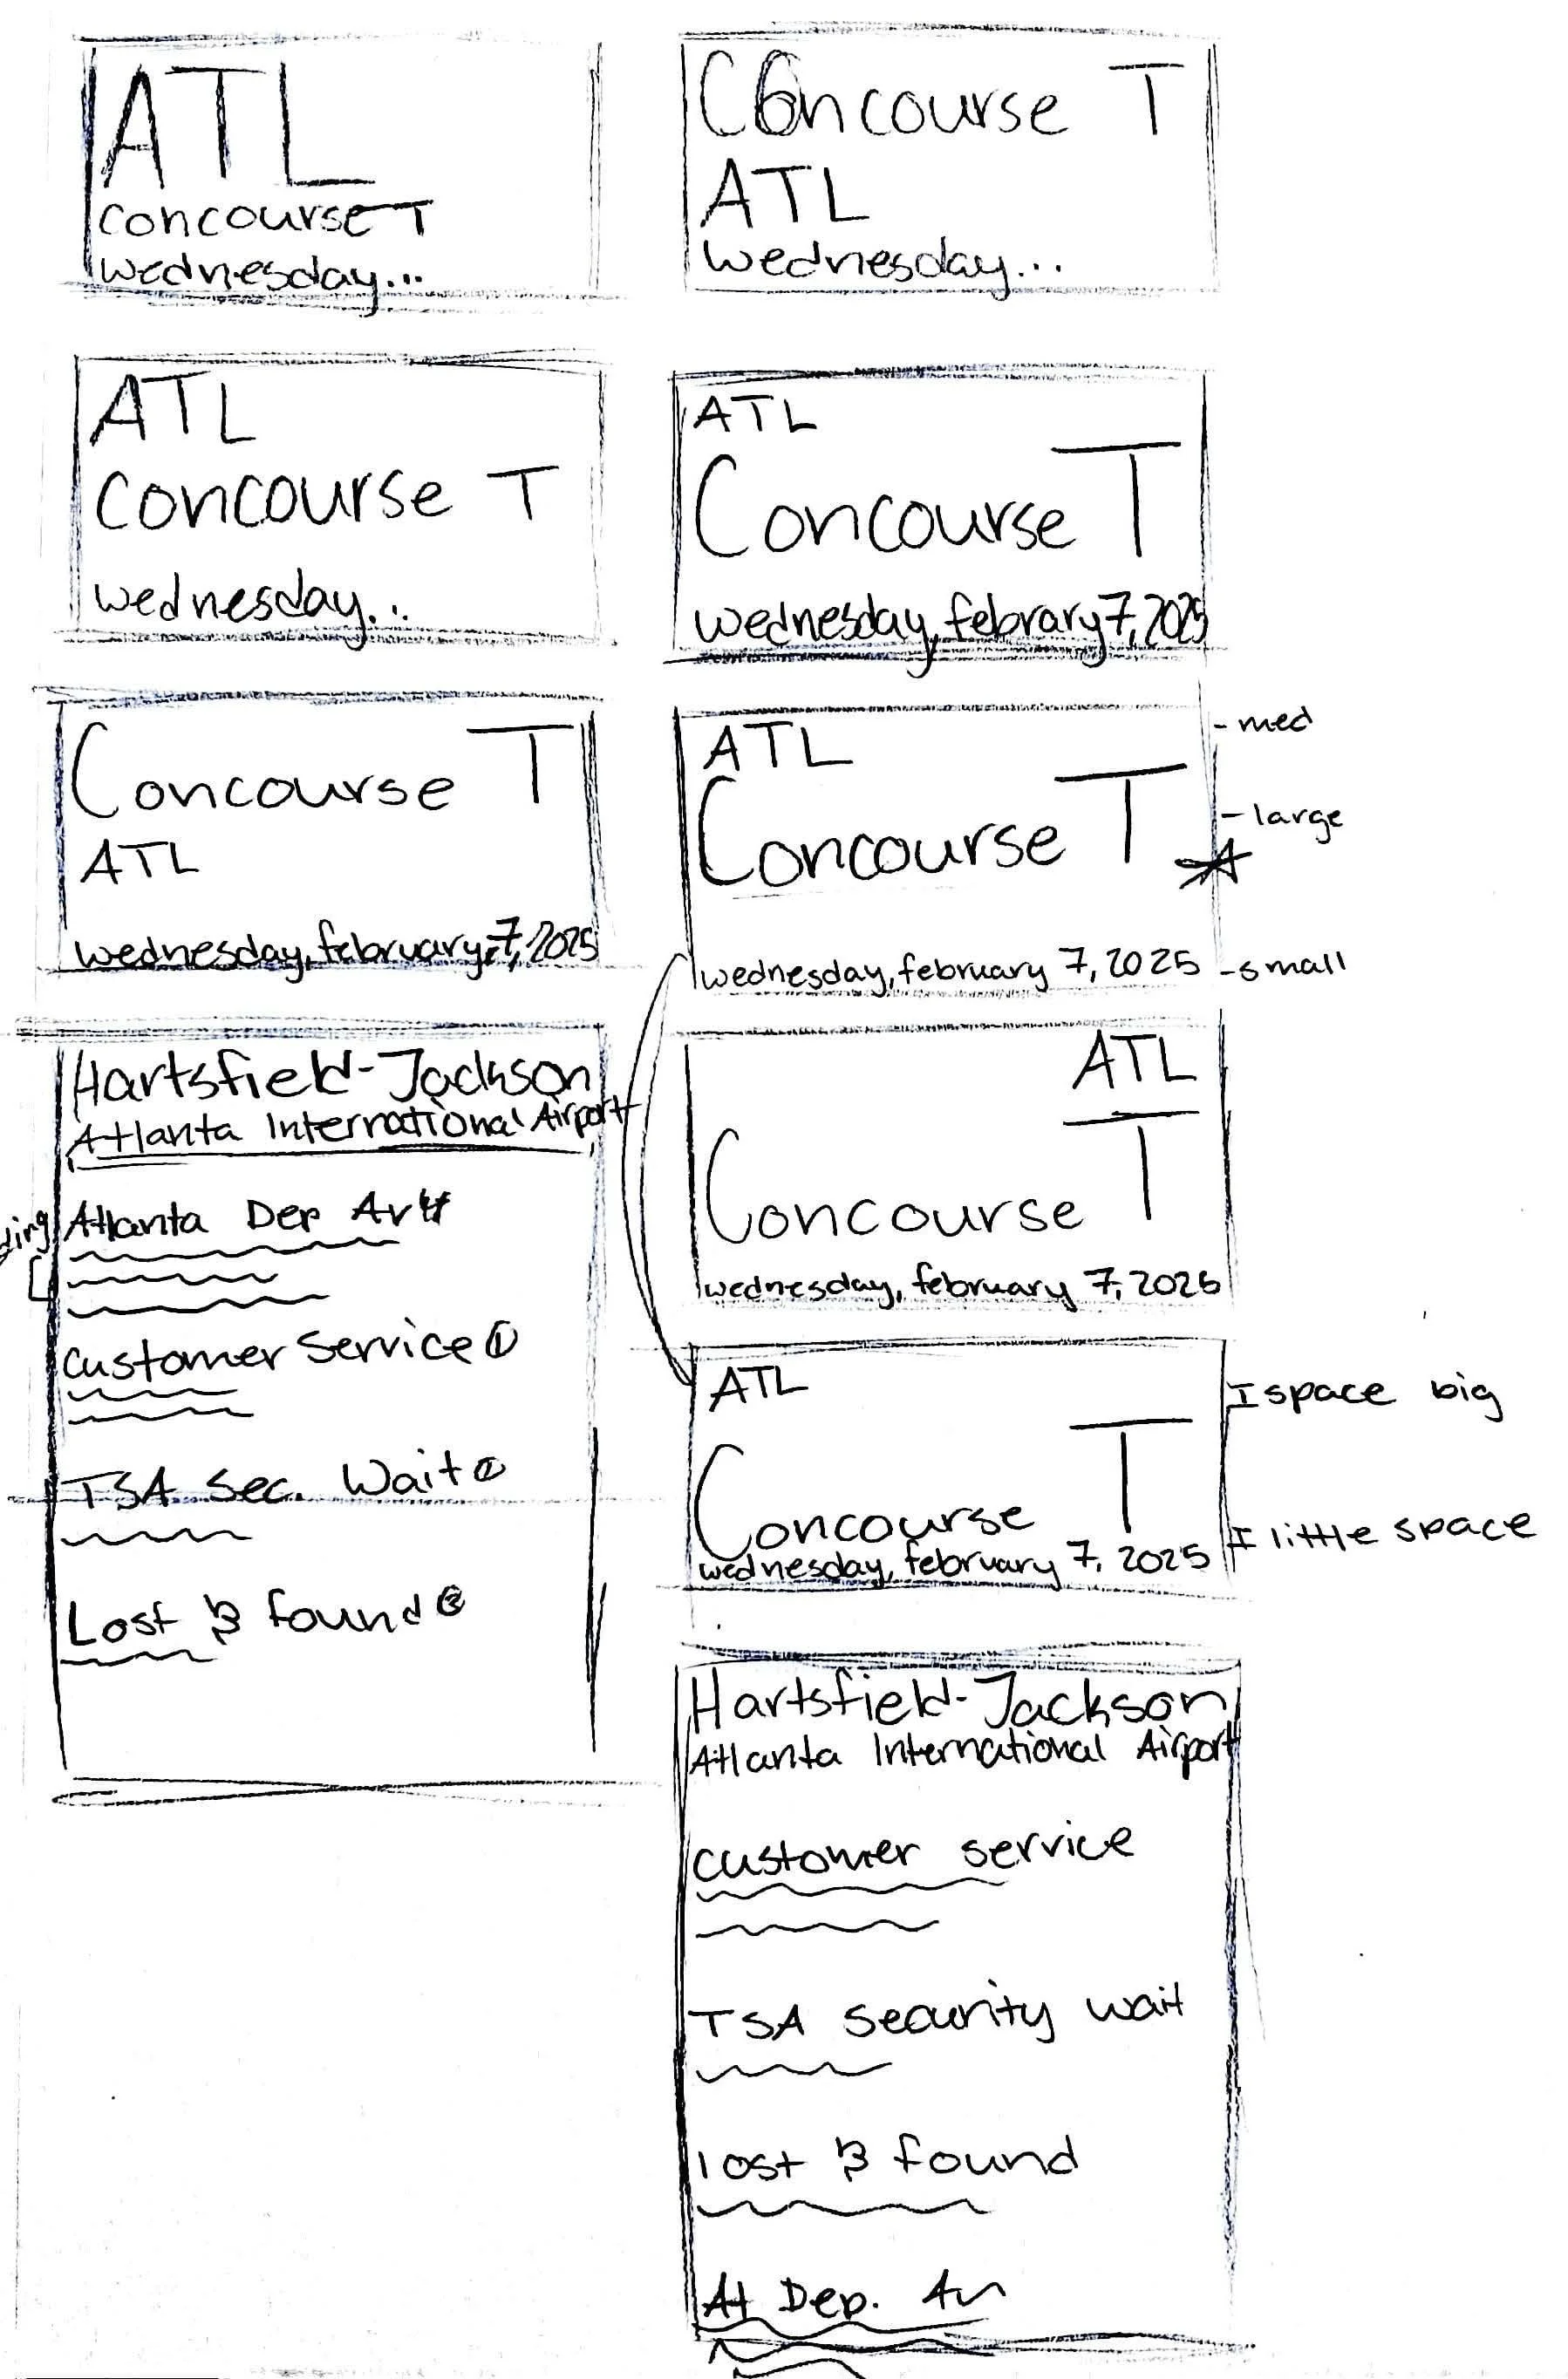 ATL
concourse T
wednesday...
Concourse T
ATL
wednesday...
ATL
concourse T
wednesday...
ATL
Concourse T
wednesday, febrary 7, 2025
Concourse T
ATL
wednesday, february, 7, 2025
ATL
Concourse T
wednesday, february 7, 2025
- med
- large
- small
Hartsfield-Jackson
Atlanta International Airport
Atlanta Dep
customer service ①
TSA Sec. Wait ②
Lost & found ③
ATL
Concourse T
wednesday, february 7, 2025
ATL
Concourse T
wednesday, february 7, 2025
I space big
I little space
Hartsfield-Jackson
Atlanta International Airport
customer service
TSA security wait
lost & found
Dep.